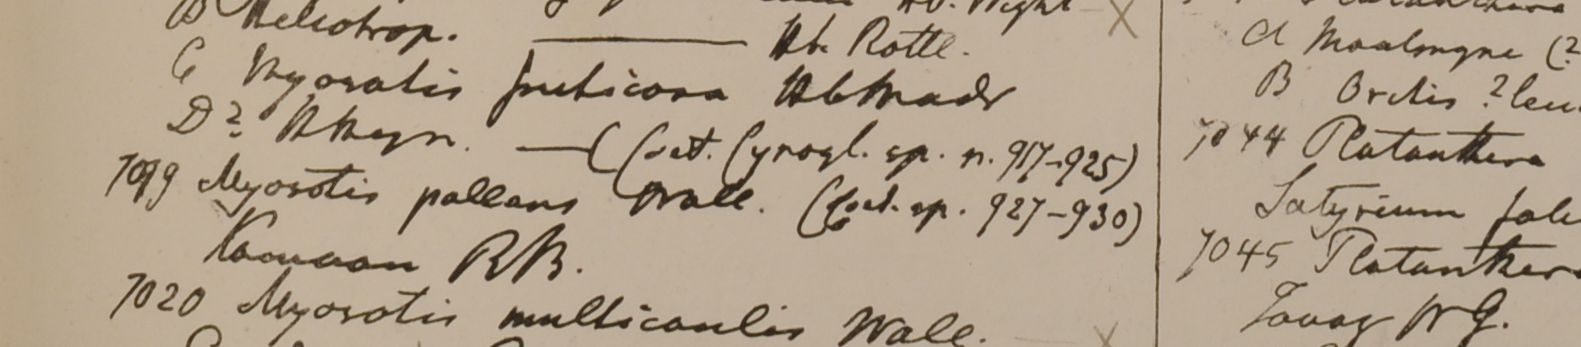 B Heliotrop. Hb. Wight
——— Hb. Rottl.
C Myosotis fruticosa Hb Madr
D?
(Cat. Cynogl. sp. n. 917-925)
7019 Myosotis pallens Wall. (Cat. sp. 927-930)
Kamaon RB.
7020 Myosotis multicaulis Wall.
B Orchis ? leu
7044 Platanthera
Satyrium
7045 Platanthera
Tavoy WG.